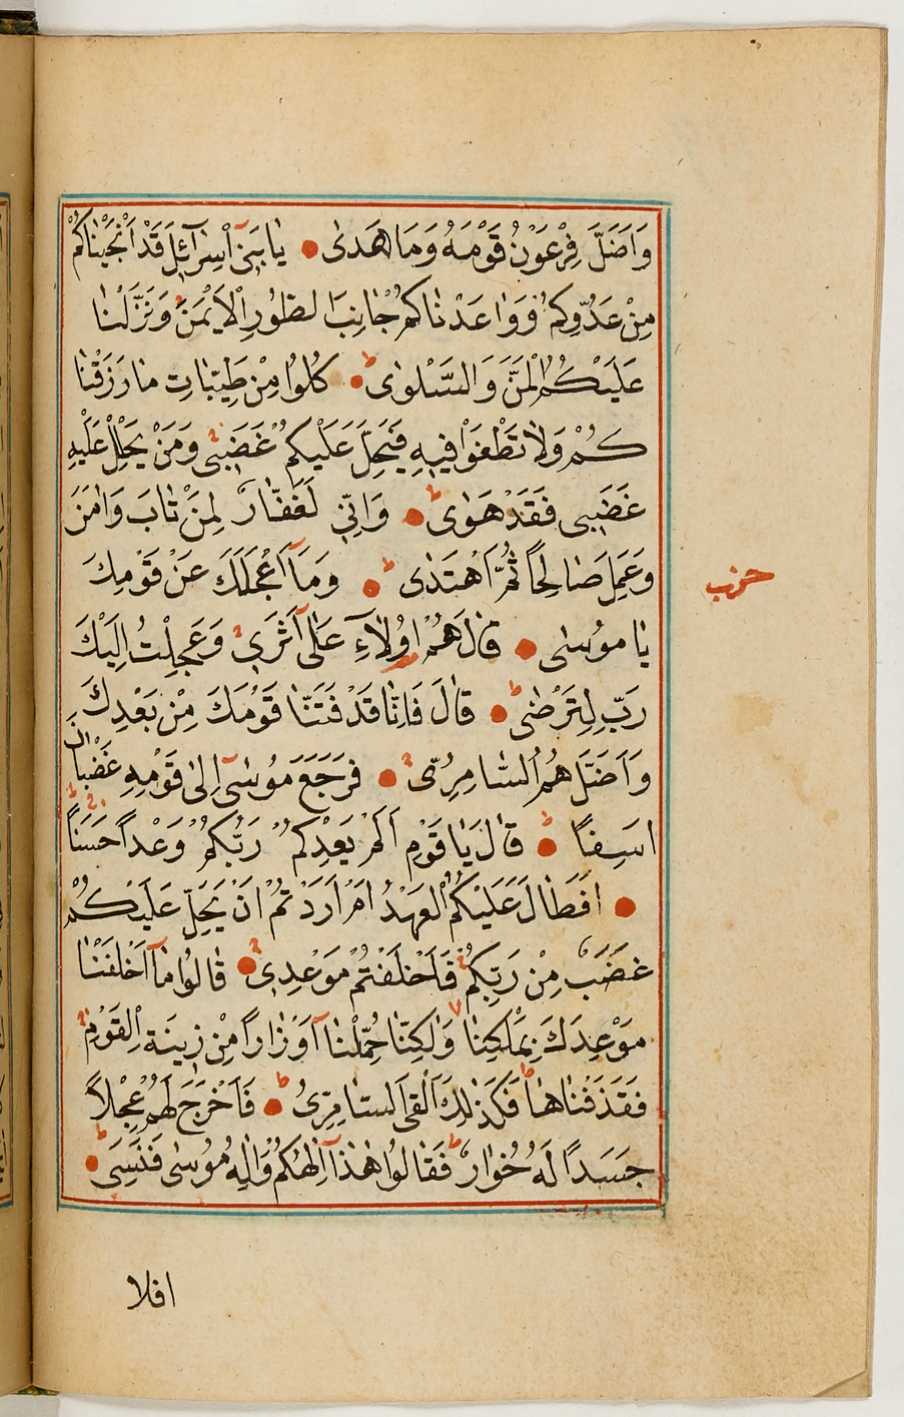 وَاَضَلَّ فِرْعَوْنُ قَوْمَهُ وَمَا هَدٰى يٰا بَنٖٓى اِسْرٰٓائٖلَ قَدْ اَنْجَيْنٰاكُمْ
مِنْ عَدُوِّكُمْ وَوٰاعَدْنٰاكُمْ جٰانِبَ الطُّورِ الْاَيْمَنَ وَنَزَّلْنٰا
عَلَيْكُمُ الْمَنَّ وَالسَّلْوٰى ط كُلُوا مِنْ طَيِّبٰاتِ مٰا رَزَقْنٰا
كُمْ وَلٰا تَطْغَوْا فٖيهِ فَيَحِلَّ عَلَيْكُمْ غَضَبٖى وَمَنْ يَحْلِلْ عَلَيْهِ
غَضَبٖى فَقَدْ هَوٰى وَاِنّٖى لَغَفّٰارٌ لِمَنْ تٰابَ وَاٰمَنَ
وَعَمِلَ صٰالِحًا ثُمَّ اهْتَدٰى ط وَمَٓا اَعْجَلَكَ عَنْ قَوْمِكَ
حزب
يٰا مُوسٰى قٰالَ هُمْ اُولٰٓاءِ عَلٰٓى اَثَرٖى وَعَجِلْتُ اِلَيْكَ
رَبِّ لِتَرْضٰى ط قٰالَ فَاِنّٰا قَدْ فَتَنّٰا قَوْمَكَ مِنْ بَعْدِكَ
وَاَضَلَّهُمُ السّٰامِرِىُّ فَرَجَعَ مُوسٰٓى اِلٰى قَوْمِهٖ غَضْبٰانَ
اَسِفًا ط قٰالَ يٰا قَوْمِ اَلَمْ يَعِدْكُمْ رَبُّكُمْ وَعْدًا حَسَنًا ط
اَفَطٰالَ عَلَيْكُمُ الْعَهْدُ اَمْ اَرَدْتُمْ اَنْ يَحِلَّ عَلَيْكُمْ
غَضَبٌ مِنْ رَبِّكُمْ فَاَخْلَفْتُمْ مَوْعِدٖى قٰالُوا مٰٓا اَخْلَفْنٰا
مَوْعِدَكَ بِمَلْكِنٰا وَلٰكِنّٰا حُمِّلْنٰٓا اَوْزٰارًا مِنْ زٖينَةِ الْقَوْمِ
فَقَذَفْنٰاهٰا فَكَذٰلِكَ اَلْقَى السّٰامِرِىُّ ط فَاَخْرَجَ لَهُمْ عِجْلًا
جَسَدًا لَهُ خُوٰارٌ ط فَقٰالُوا هٰذٰٓا اِلٰهُكُمْ وَاِلٰهُ مُوسٰى فَنَسِىَ ط
افلا